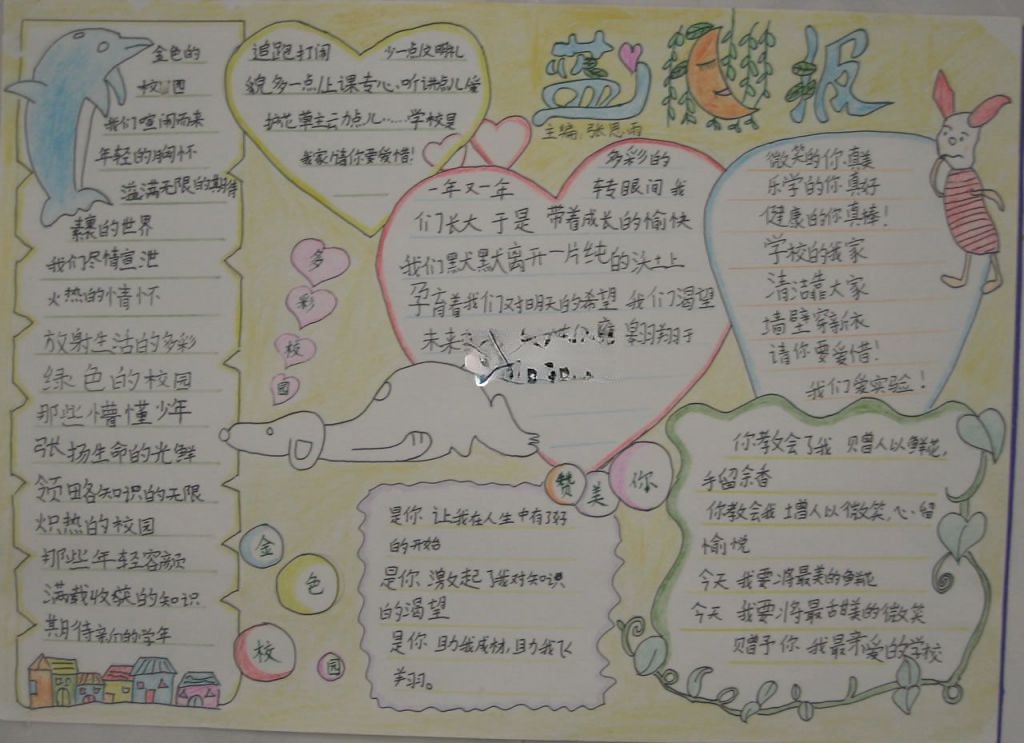 蓝月报
主编：张思雨
金色的
校园
我们喧闹而来
年轻的胸怀
溢满无限的期待
裹的世界
我们尽情宣泄
火热的情怀
放射生活的多彩
绿色的校园
那些懵懂少年
张扬生命的光鲜
领略知识的无限
炽热的校园
那些年轻容颜
满载收获的知识
期待新的学年
追跑打闹 少一点文明礼
貌多一点儿上课专心、听讲点儿爱
护花草主云力点儿……学校是
我家请你要爱惜！
多彩的
一年又一年 转眼间我
们长大 于是 带着成长的愉快
我们默默离开一片纯的沃土上
孕育着我们对明天的希望 我们渴望
未来 翱翔于
微笑的你.真美
乐学的你.真好
健康的你真棒！
学校的我家
清洁靠大家
墙壁穿新衣
请你要爱惜！
我们爱实验！
多
彩
校
园
金
色
校
园
赞美你
是你 让我在人生中有了好
的开始
是你 激发起了我对知识
的渴望
是你 助我成材，助我飞
羊羽。
你教会了我 贝赠人以鲜花，
手留余香
你教会我 增人以微笑，心留
愉悦
今天 我要将最美的鲜花
今天 我要将最甜美的微笑
赠予你 我最亲爱的学校